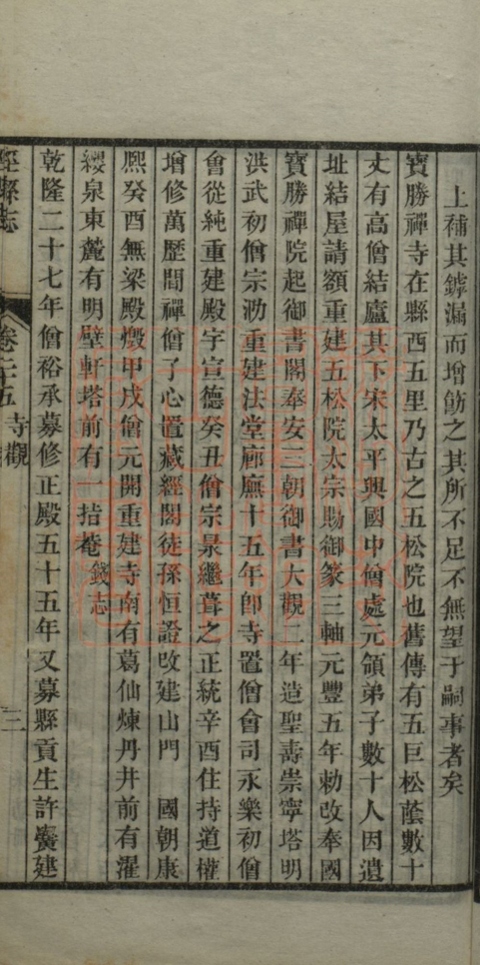 上補其鏬漏而增飭之其所不足不無望于嗣事者矣
寶勝禪寺在縣西五里乃古之五松院也舊傳有五巨松蔭數十
丈有高僧結廬其下宋太平興國中僧處元領弟子數十人因遺
址結屋請額重建五松院太宗賜御篆三軸元豐五年勅改奉國
寶勝禪院起御書閣奉安三朝御書大觀二年造聖壽崇寧塔明
洪武初僧宗泐重建法堂廊廡十五年卽寺置僧會司永樂初僧
會從純重建殿宇宣德癸丑僧宗泉繼葺之正統辛酉住持道權
增修萬歷間禪僧了心置藏經閣徒孫恒證改建山門 國朝康
熙癸酉無梁殿燬甲戌僧元開重建寺南有葛仙煉丹井前有濯
纓泉東麓有明壁軒塔前有一指菴 錢志
乾隆二十七年僧裕承募修正殿五十五年又募縣貢生許釁建
涇縣志 卷二十五 寺觀 三